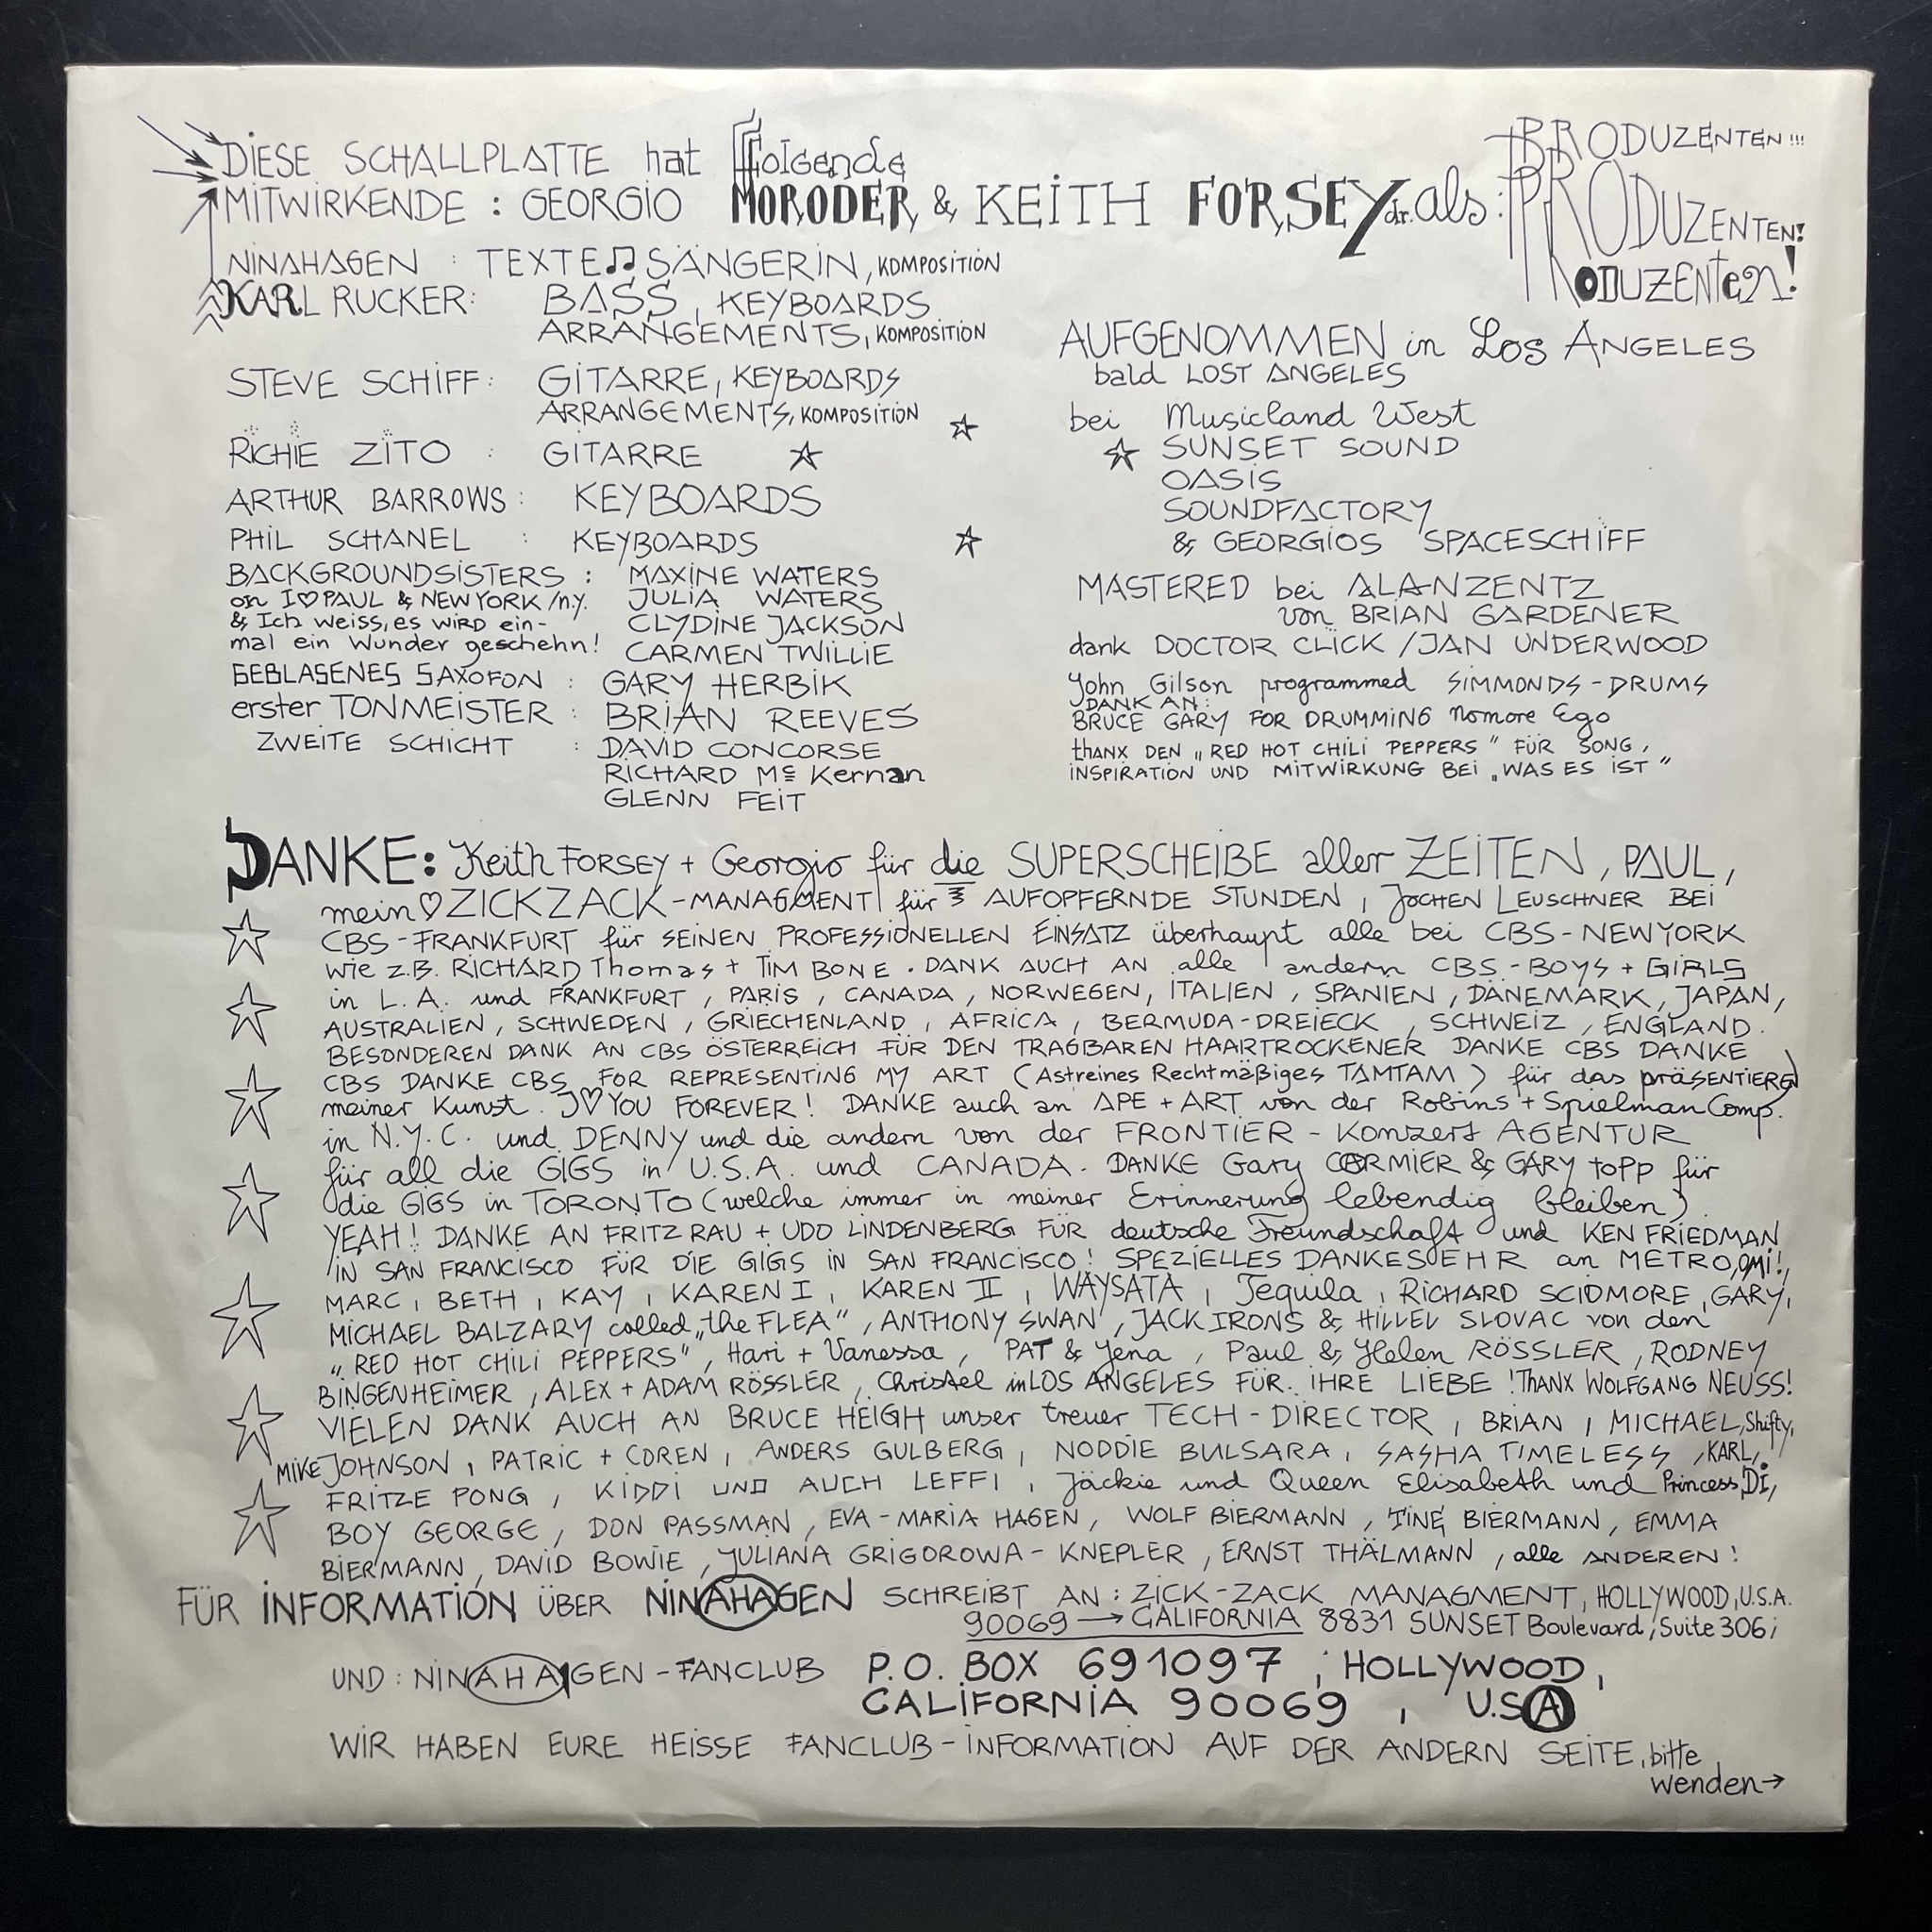 DIESE SCHALLPLATTE hat folgende
MITWIRKENDE : GEORGIO MORODER & KEITH FORSEY dr. als :
PRODUZENTEN !!!
PRODUZENTEN!
PRODUZENTEN!
NINAHAGEN : TEXTE♫ SÄNGERIN, KOMPOSITION
KARL RUCKER: BASS, KEYBOARDS
ARRANGEMENTS, KOMPOSITION
STEVE SCHIFF: GITARRE, KEYBOARDS
ARRANGEMENTS, KOMPOSITION
RICHIE ZITO : GITARRE
ARTHUR BARROWS: KEYBOARDS
PHIL SCHANEL : KEYBOARDS
BACKGROUNDSISTERS : MAXINE WATERS
on I♡PAUL & NEW YORK /N.Y. JULIA WATERS
& Ich weiss, es wird ein- CLYDINE JACKSON
mal ein Wunder geschehn! CARMEN TWILLIE
GEBLASENES SAXOFON : GARY HERBIK
erster TONMEISTER : BRIAN REEVES
ZWEITE SCHICHT : DAVID CONCORSE
RICHARD Mc Kernan
GLENN FEIT
AUFGENOMMEN in Los ANGELES
bald LOST ANGELES
bei Musicland West
SUNSET SOUND
OASIS
SOUNDFACTORY
& GEORGIOS SPACESCHIFF
MASTERED bei ALANZENTZ
von BRIAN GARDENER
dank DOCTOR CLICK / JAN UNDERWOOD
John Gilson programmed SIMMONDS-DRUMS
DANK AN:
BRUCE GARY FOR DRUMMING Nomore Ego
thanx DEN „RED HOT CHILI PEPPERS" FÜR SONG,
INSPIRATION UND MITWIRKUNG BEI „WAS ES IST"
DANKE: Keith FORSEY + Georgio für die SUPERSCHEIBE aller ZEITEN, PAUL,
mein♡ZICKZACK-MANAGMENT für AUFOPFERNDE STUNDEN, JOCHEN LEUSCHNER BEI
CBS-FRANKFURT für SEINEN PROFESSIONELLEN EINSATZ überhaupt alle bei CBS-NEWYORK
wie z.B. RICHARD Thomas + TIM BONE. DANK AUCH AN alle andern CBS-BOYS + GIRLS
in L.A. und FRANKFURT, PARIS, CANADA, NORWEGEN, ITALIEN, SPANIEN, DÄNEMARK, JAPAN,
AUSTRALIEN, SCHWEDEN, GRIECHENLAND, AFRICA, BERMUDA-DREIECK, SCHWEIZ, ENGLAND.
BESONDEREN DANK AN CBS ÖSTERREICH FÜR DEN TRAGBAREN HAARTROCKENER DANKE CBS DANKE
CBS DANKE CBS FOR REPRESENTING MY ART (Astreines Rechtmäßiges TAMTAM) für das präsENTIEREN
meiner Kunst. I♡YOU FOREVER! DANKE auch an APE + ART von der Robins + Spielman Comp.
in N.Y.C. und DENNY und die andern von der FRONTIER-Konzert AGENTUR
für all die GIGS in U.S.A. und CANADA. DANKE Gary CORMIER & GARY TOPP für
die GIGS in TORONTO (welche immer in meiner Erinnerung lebendig bleiben)
YEAH! DANKE AN FRITZ RAU + UDO LINDENBERG FÜR deutsche Freundschaft und KEN FRIEDMAN
IN SAN FRANCISCO FÜR DIE GIGS IN SAN FRANCISCO! SPEZIELLES DANKESEHR an METRO, OMI!,
MARC, BETH, KAY, KAREN I, KAREN II, WAYSATA, Tequila, RICHARD SCIDMORE, GARY,
MICHAEL BALZARY called „the FLEA", ANTHONY SWAN, JACK IRONS & HILLEL SLOVAC von den
„RED HOT CHILI PEPPERS", Hari + Vanessa, PAT & Yena, Paul & Helen RÖSSLER, RODNEY
BINGENHEIMER, ALEX + ADAM RÖSSLER, Christel in LOS ANGELES FÜR IHRE LIEBE! THANX WOLFGANG NEUSS!
VIELEN DANK AUCH AN BRUCE HEIGH unser treuer TECH-DIRECTOR, BRIAN, MICHAEL, Shifty,
MIKE JOHNSON, PATRIC + COREN, ANDERS GULBERG, NODDIE BULSARA, SASHA TIMELESS, KARL,
FRITZE PONG, KIDDI UND AUCH LEFFI, Jäckie und Queen Elisabeth und Princess Di,
BOY GEORGE, DON PASSMAN, EVA-MARIA HAGEN, WOLF BIERMANN, TINE BIERMANN, EMMA
BIERMANN, DAVID BOWIE, JULIANA GRIGOROWA-KNEPLER, ERNST THÄLMANN, alle ANDEREN!
FÜR INFORMATION ÜBER NINAHAGEN SCHREIBT AN: ZICK-ZACK MANAGMENT, HOLLYWOOD, U.S.A.
90069 → CALIFORNIA 8831 SUNSET Boulevard, Suite 306;
UND: NINAHAGEN-FANCLUB P.O. BOX 691097, HOLLYWOOD,
CALIFORNIA 90069, U.S.A
WIR HABEN EURE HEISSE FANCLUB-INFORMATION AUF DER ANDERN SEITE, bitte
wenden→